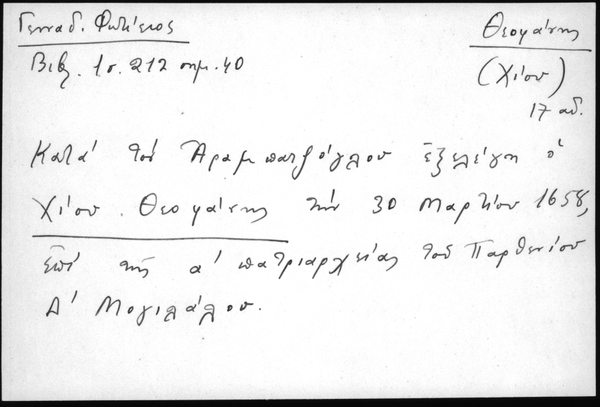 Γενναδ. Φωτίειος
Θεοφάνης
Βιβλ. 1 σ. 212 σημ. 40
(Χίου)
17 αἰ.
Κατά τόν Ἀραμπατζόγλου ἐξελέγη ὁ
Χίου Θεοφάνης τήν 30 Μαρτίου 1658,
ἐπί τῆς α' πατριαρχείας τοῦ Παρθενίου
Δ' Μογιλάλου.